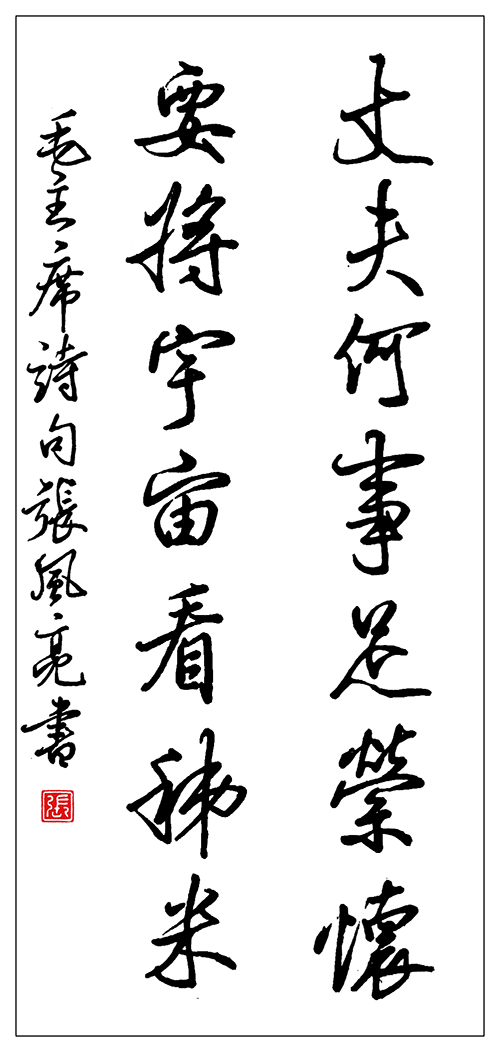 丈夫何事足縈懷
要將宇宙看稊米
毛主席詩句張風亮書
張